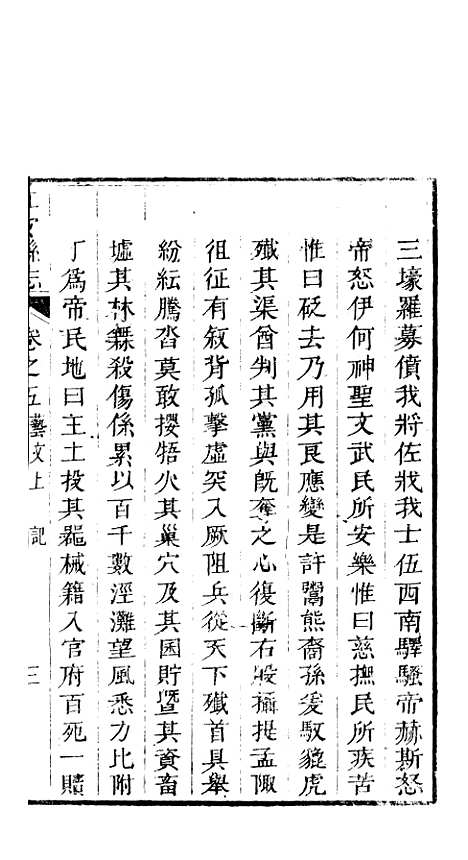 三壕羅募僨我將佐戕我士伍西南驛騷帝赫斯怒
帝怒伊何神聖文武民所安樂惟曰慈撫民所疾苦
惟曰砭去乃用其良應變是許鬻熊裔孫爰馭貔虎
殲其渠酋判其黨與既奪之心復斷右股攝提孟陬
徂征有敘背孤擊虛突入厥阻兵從天下殲首具舉
紛紜騰沓莫敢攖牾火其巢穴及其囷貯暨其資畜
墟其林麓殺傷係累以百千數涇灘望風悉力比附
丁為帝民地曰王土投其器械籍入官府百死一贖
縣志 卷之五藝文上 記 三